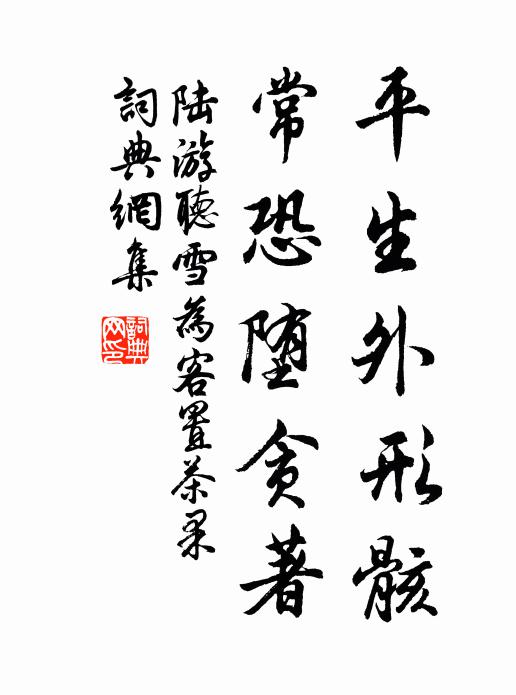 平生外形骸
常恐堕貪著
陸游聽雪為客置茶果
詞典網集
詞典
网印